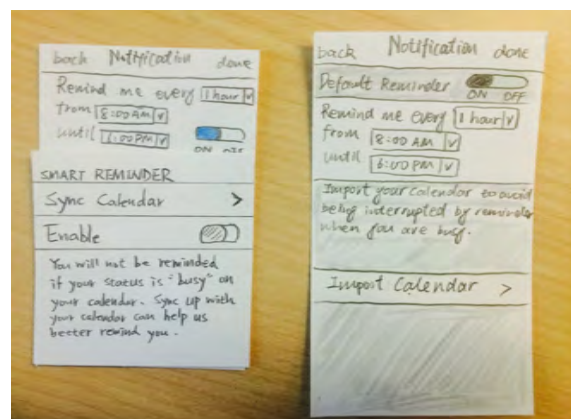 back Notification done
Remind me every 1 hour
from 8:00 AM
until 6:00 PM
ON
SMART REMINDER
Sync Calendar >
Enable
You will not be reminded
if your status is "busy" on
your calendar. Sync up with
your calendar can help us
better remind you.
back Notification done
Default Reminder
ON OFF
Remind me every 1 hour
from 8:00 AM
until 6:00 PM
Import your calendar to avoid
being interrupted by reminder
when you are busy.
Import Calendar >